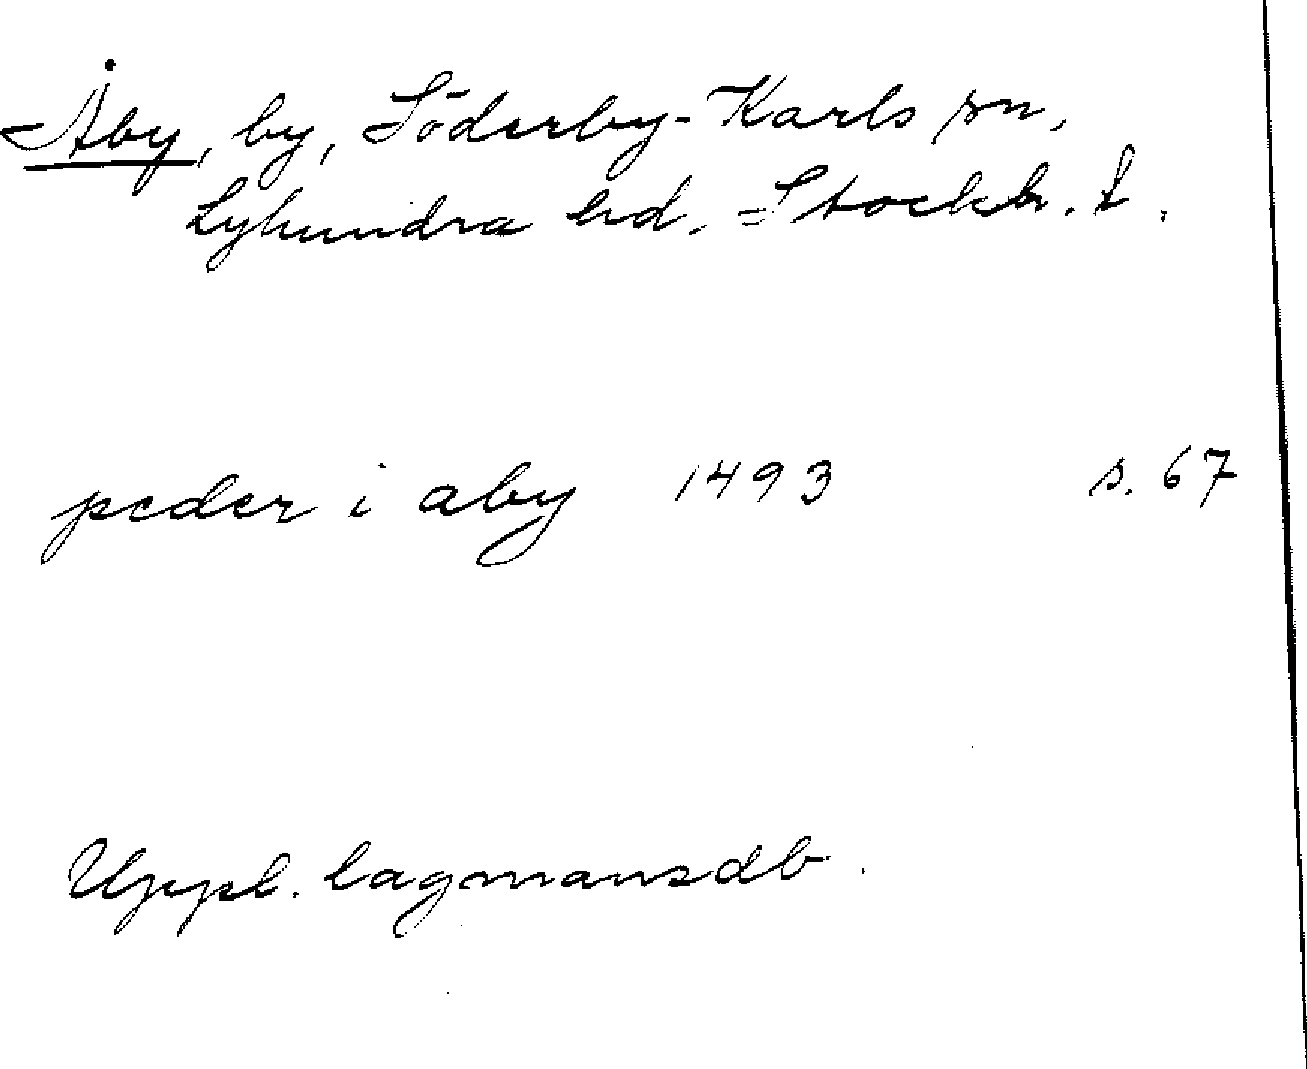 Åby, by, Söderby-Karls sn,
Lyhundra hd, Stockh. l.
peder i aby 1493 s. 67
Uppl. lagmansdb.